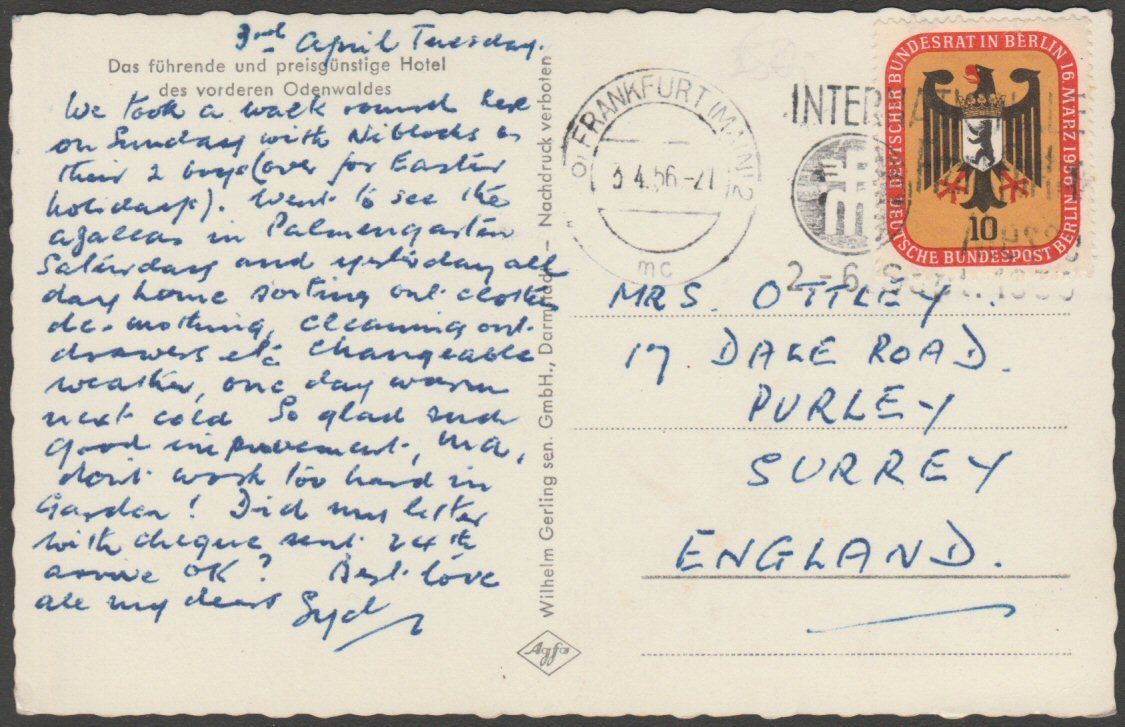 3rd April Tuesday.
Das führende und preisgünstige Hotel
des vorderen Odenwaldes
We took a walk round here
on Sunday with Niblocks &
their 2 boys (over for Easter
holidays). Went to see the
azaleas in Palmengarten
Saturday and yesterday all
day home sorting out clothes
de-mothing, cleaning out
drawers etc Changeable
weather, one day warm
next cold So glad such
good improvement, Ma,
don't work too hard in
Garden! Did my letter
with cheque sent 24th
arrive OK? Best love
all my dears Syd
Wilhelm Gerling sen. GmbH., Darmstadt – Nachdruck verboten
Agfa
FRANKFURT (MAIN) 2
3.4.56-21
mc
INTER
2-6. Sept. 19
DEUTSCHER BUNDESRAT IN BERLIN 16. MÄRZ 1956
DEUTSCHE BUNDESPOST BERLIN
10
MRS. OTTLEY.
17 DALE ROAD.
PURLEY
SURREY
ENGLAND.